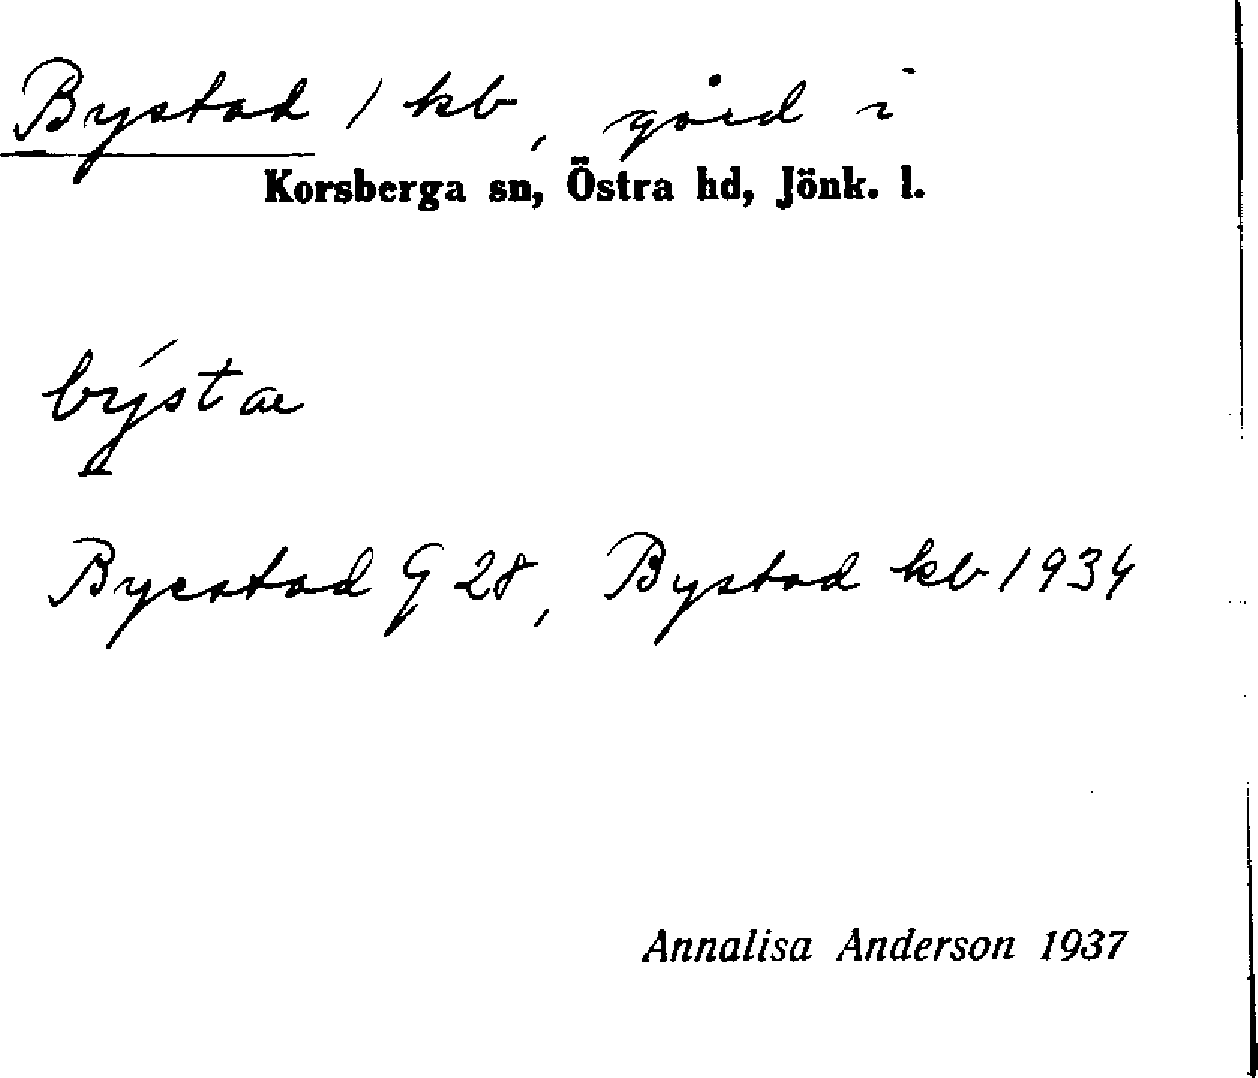 Bystad 1 kb, gård i
Korsberga sn, Östra hd, Jönk. l.
býstaα
Bycstad G 28, Bystad kb 1934
Annalisa Anderson 1937